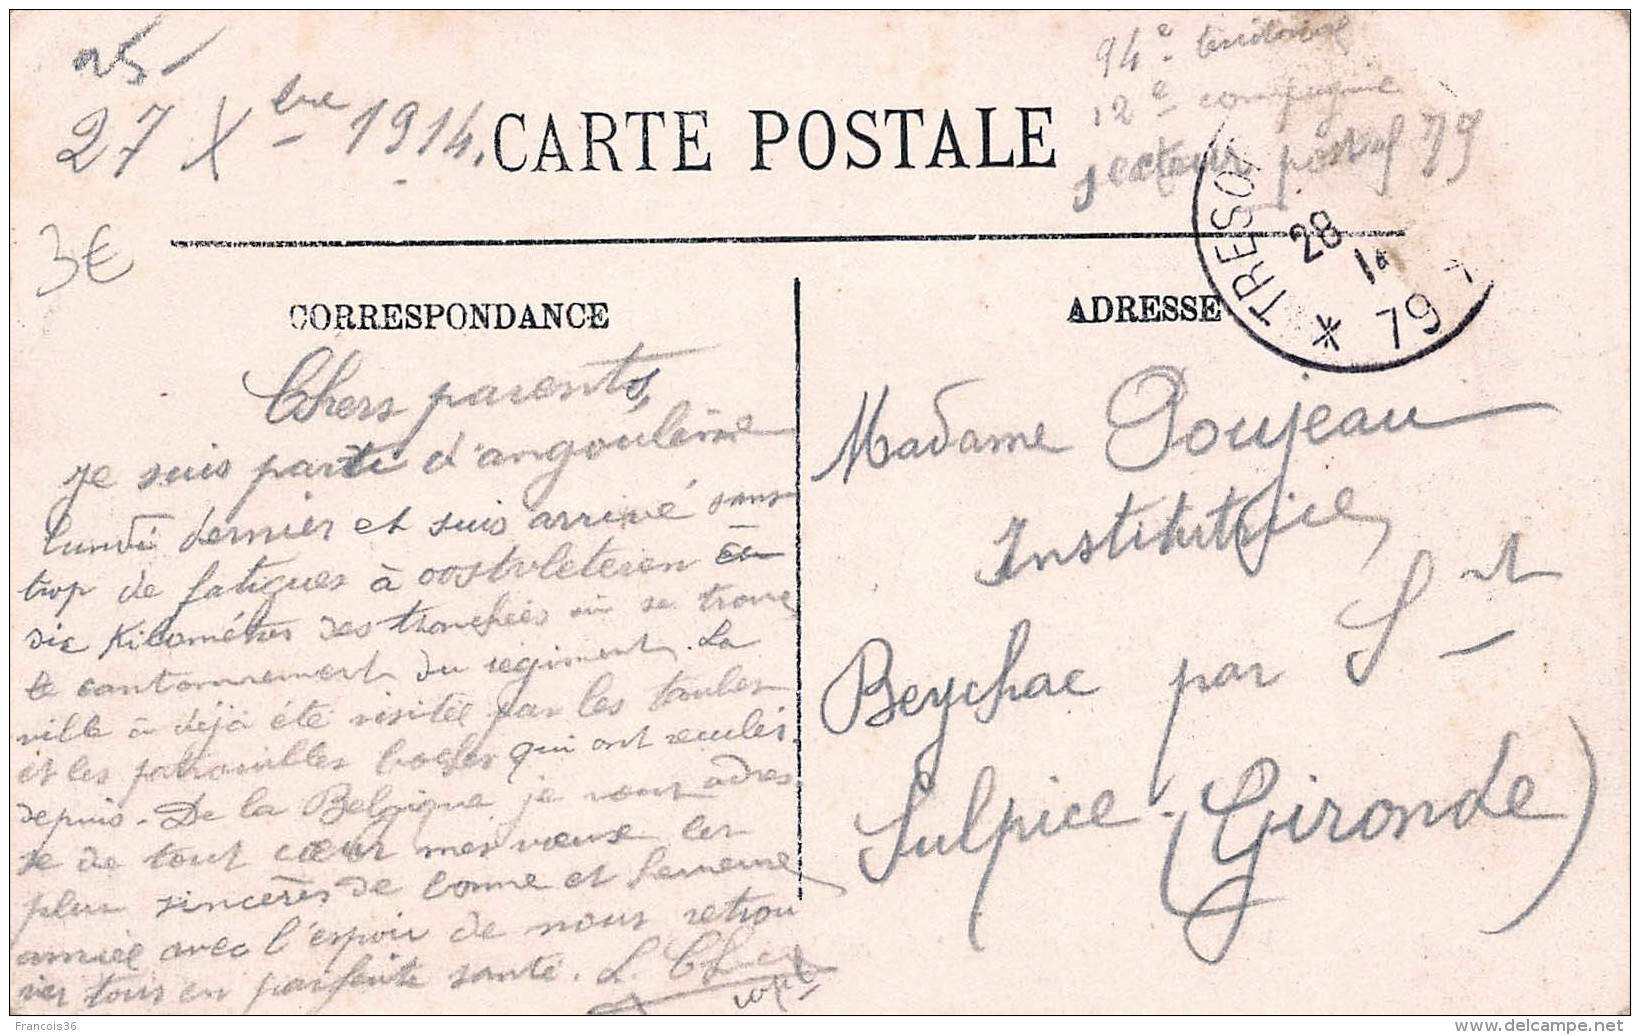 25
27 Xbre 1914.
CARTE POSTALE
94e territorial
12e compagnie
secteur postal 79
3€
TRESOR
28
79
CORRESPONDANCE
ADRESSE
Chers parents,
Je suis parti d'angoulême
lundi dernier et suis arrivé sans
trop de fatigues à oostvleteren à
dix kilomètres des tranchées où se trouve
le cantonnement du régiment. La
ville à déjà été visitée par les taubes
et les patrouilles boches qui ont reculés
depuis. De la Belgique je vous adres
se de tout cœur mes vœux les
plus sincères de bonne et heureuse
année avec l'espoir de nous retrou
ver tous en parfaite santé.
Madame Poujeau
Institutrice
Beychac par St
Sulpice (Gironde)
Francois36
www.delcampe.net